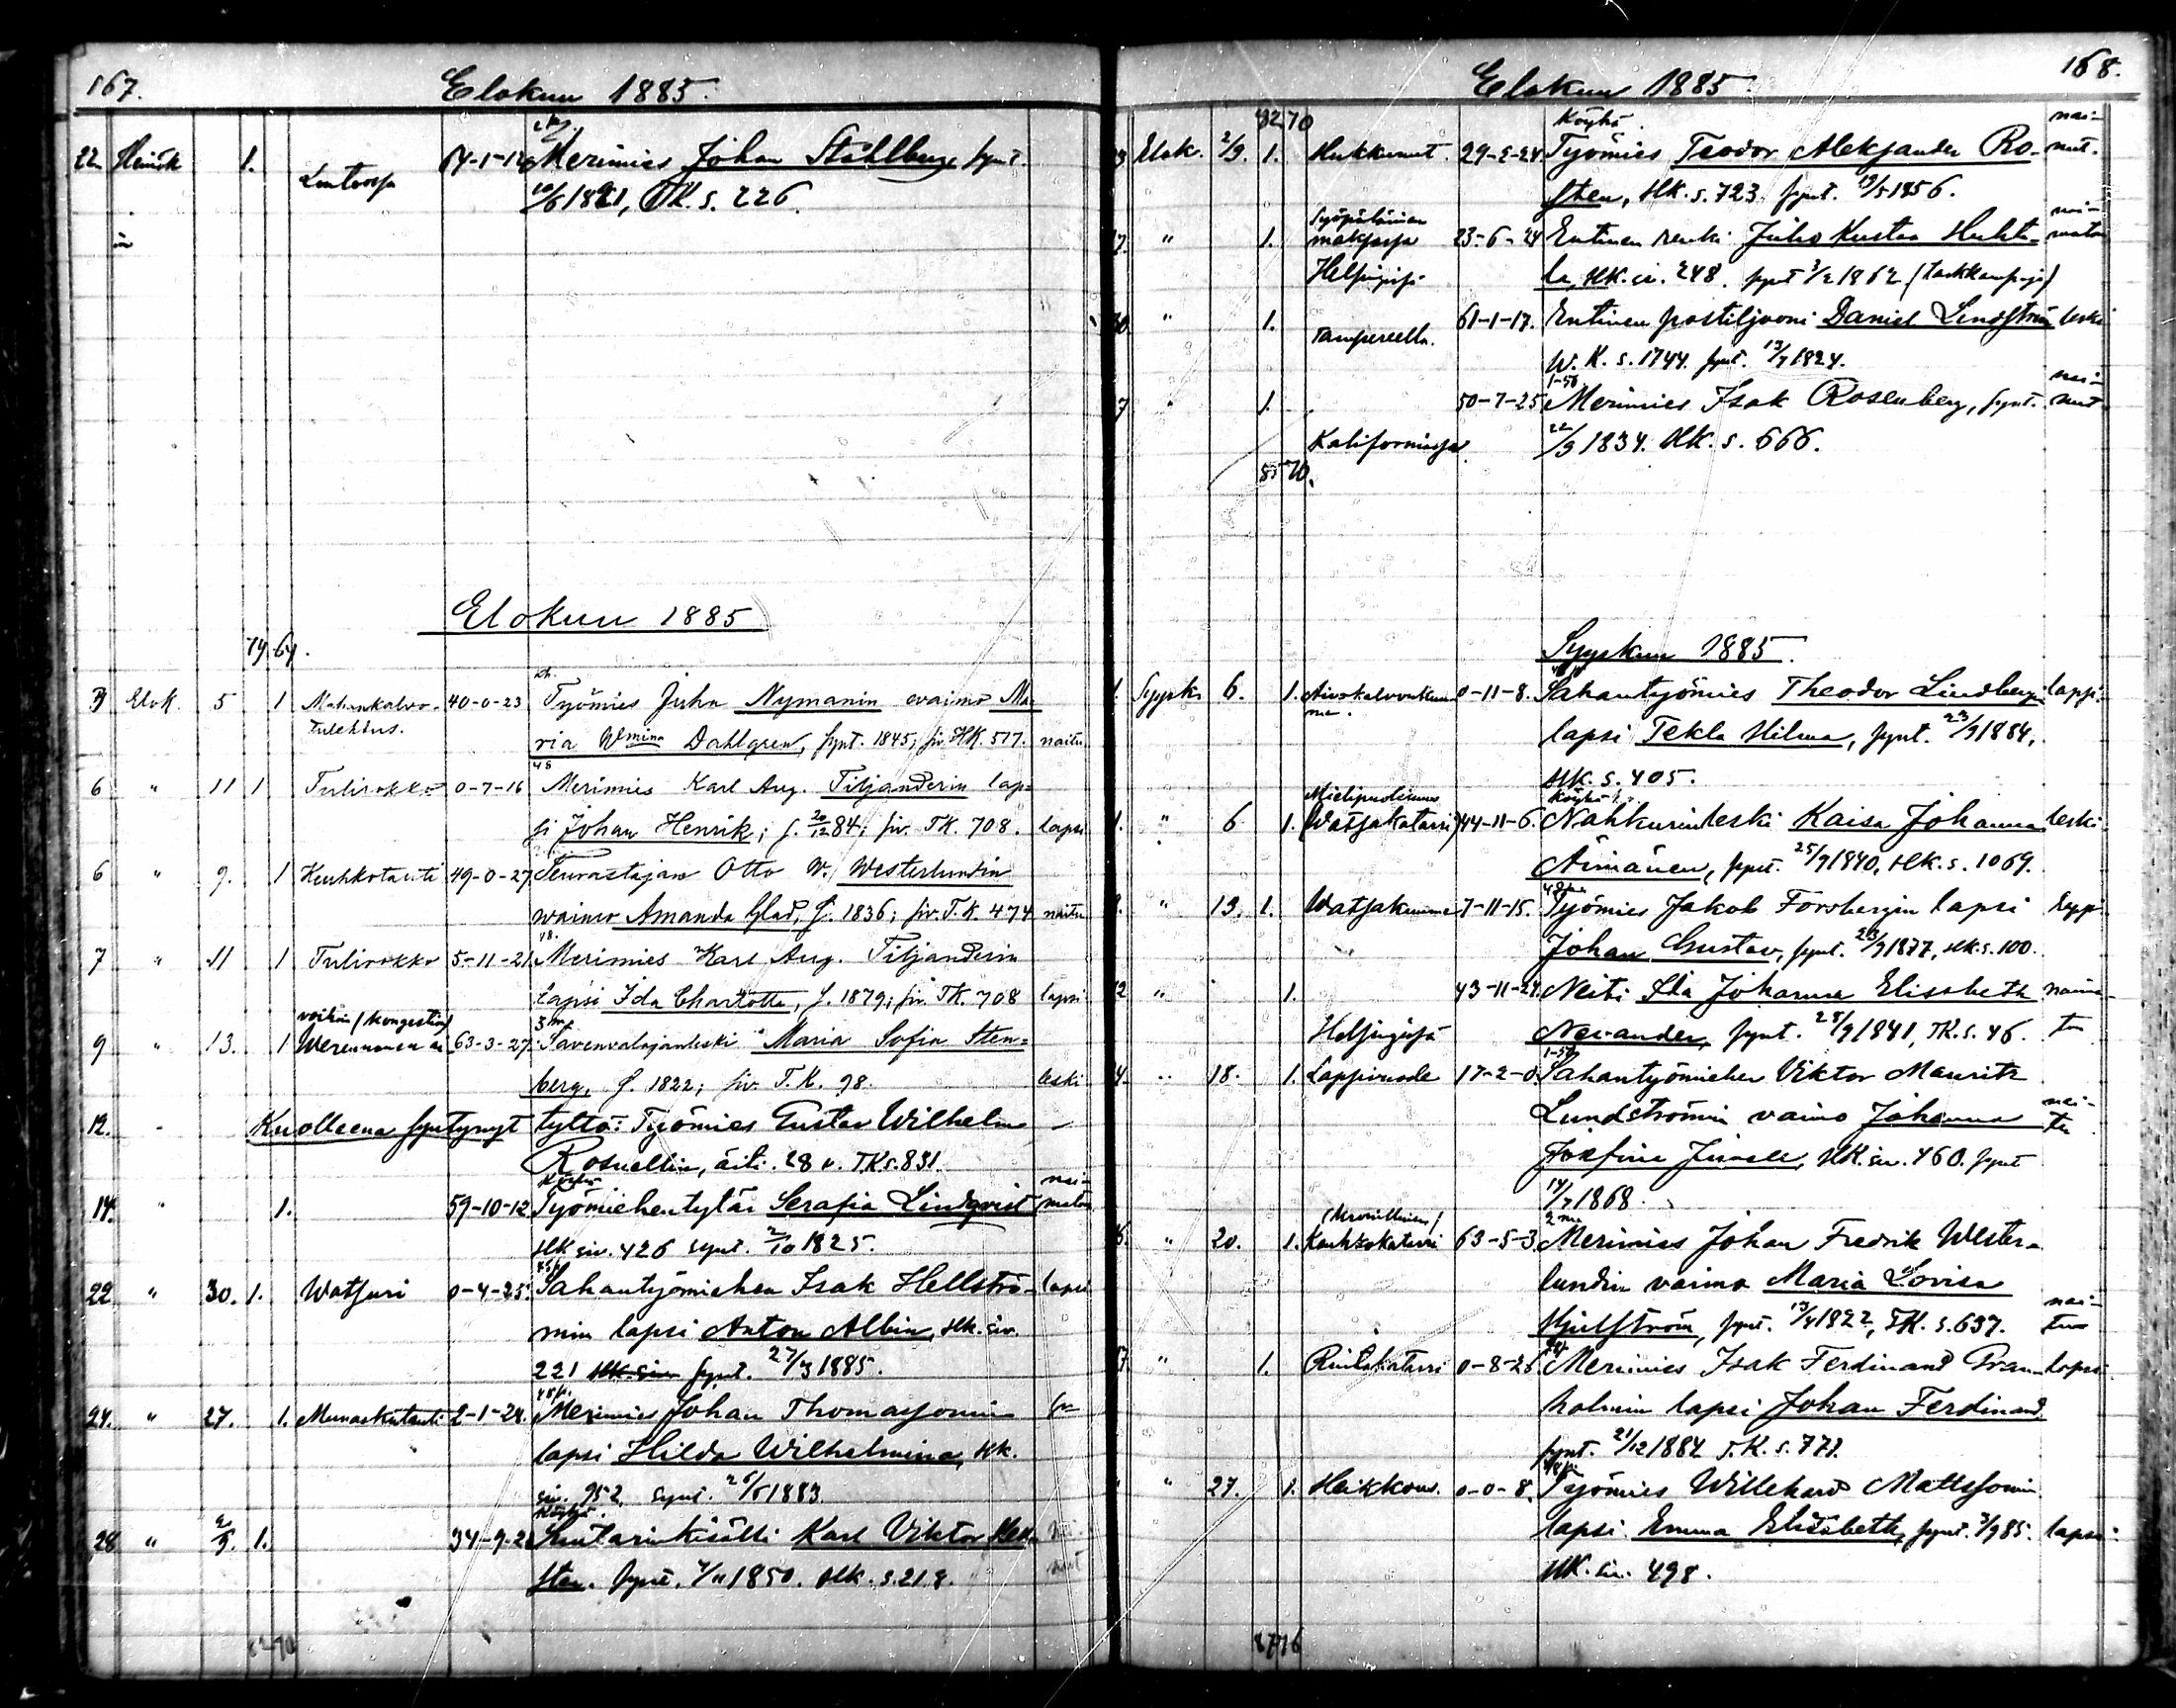 167.
Elokuu 1885.
22 Heinäk 1. 64-1-12 Merimies Johan Ståhlberg synt.
10/6 1821, TK. s. 226.
Elokuu 1885
79 64.
3 Elok. 5 1 Mahankalvo- 40-0-23 Työmies Juha Nymanin vaimo Ma-
tulehdus. ria Wmina Dahlgren, synt. 1845; siv. HK. 517. naitu
6 " 11 1 Tulirokko 0-7-16 Merimies Karl Aug. Tiljanderin lap=
si Johan Henrik; s. 20/12 84; siv. TK. 708. lapsi
6 " 9. 1 Keuhkotauti 49-0-27 Teurastajan Otto W. Westerlundin
waimo Amanda Glad, s. 1836; siv. T.K. 474 naitu
48.
7 " 11 1 Tulirokko 5-11-21 Merimies Karl Aug. Tiljanderin
lapsi Ida Charlotta, s. 1879; siv. TK. 708 lapsi
9 " 13. 1 63-3-27. Savenvalajanleski Maria Sofia Sten=
berg, s. 1822; siv. T.K. 98. leski
12. Kuolleena syntynyt tyttö: Työmies Gustav Wilhelm
äiti 28 v. TK s. 831.
nai-
14. " 1. 59-10-12 Työmiehentytär Serafia Lindqvist maton
HK siv. 426 synt. 2/10 1825.
22. " 30. 1. Watsuri 0-4-25. Sahantyömiehen Isak Hellströ- lapsi
min lapsi Anton Albin, HK. siv.
221 synt. 27/3 1885.
24. " 27. 1. Munaskutauti 2-1-28. Merimies Johan Thomassonin
lapsi Hilda Wilhelmina, HK.
siv. 952. synt. 26/6 1883.
28 " 2/9. 1. 34-9-2 Karl Viktor Hell-
sten. synt. 1850. HK. s. 218.
168.
Elokuu 1885
82 70
Köyhä. nai-
Elok. 2/9. 1. Hukkunut. 29-2-24 Työmies Teodor Aleksander Ro- nut.
sten, HK. s. 723. synt. 1856.
Syöpätauti
" 1. maksassa 23-6-24 Entinen renki Juho Kustaa Huhta- maton
Helsingissä la, HK. siv. 248. synt 3/2 1862
" 1. Tampereella. 61-1-17. Entinen postiljooni Daniel Lindström leski
W. K. s. 1744. synt. 13/7 1824.
1-56 nai-
" 1. 50-7-25 Merimies Isak Rosenberg, synt. nut
Kaliforniassa 22/9 1834. HK. s. 666.
85 70.
Syyskuu 1885.
1. Syysk. 6. 1. 0-11-8. Sahantyömies Theodor Lindbergin lapsi.
lapsi Tekla Hilma, synt. 23/9 1884,
HK. s. 405.
Mielipuolisuus Köyhä
1. " 6 1. Watsakatarri 44-11-6. Nahkurinleski Kaisa Johanna leski.
Äimänen, synt. 25/9 1840, HK. s. 1069.
" 13. 1. 7-11-15. Työmies Jakob Forsbergin lapsi lapsi
Johan Gustav, synt. 1877, HK. s. 100.
" 1. 43-11-24. Neiti Ida Johanna Elisabeth naima-
Helsingissä Nervander, synt. 1841, TK. s. 46. ton
1-57
" 18. 1. Lapsivuode 17-2-0. Sahantyömiehen Viktor Mauritz
Lundströmin vaimo Johanna nai-
Josefina HK. siv. 460. synt tu
14/7 1868.
(kroonillinen)
" 20. 1. Keuhkokatarri 63-5-3 Merimies Johan Fredrik Wester-
lundin vaimo Maria Lovisa
Hjulström, synt. 13/4 1822, TK. s. 637. nai-
" 1. Rintakatarri 0-8-26 Merimies Isak Ferdinand Gran- lapsi.
holmin lapsi Johan Ferdinand
synt. 21/12 1884. T.K. s. 771.
" 27. 1. Heikkous. 0-0-8. Työmies Willehard Mattssonin
lapsi Emma Elisabeth, synt. 85. lapsi.
HK. siv. 498.
87 76